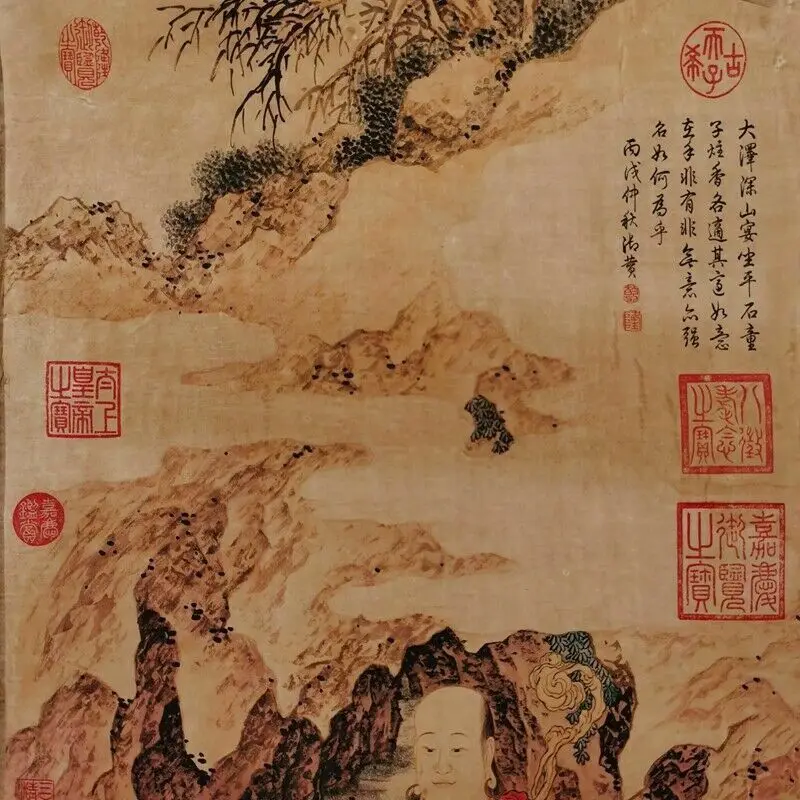 古希天子
大澤深山宴坐平石童
子炷香各適其宜如意
在手非有非無意亦強
名如何為乎
丙戌仲秋御贊
乾隆
八徵耄念之寶
嘉慶御覽之寶
乾隆御覽之寶
太上皇帝之寶
嘉慶鑑賞